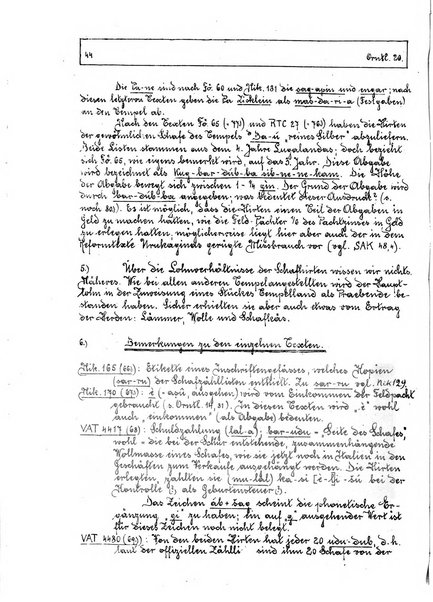 44 Orntl. 20.
Die Ru-ne sind nach Fö. 60 und Nik. 181 die sag-apin und engar; nach
diesen letztern Texten geben die Ru Zicklein als mas-da-ri-a (Festgaben)
an den Tempel ab.
Nach den Texten Fö 65 (= 77) und RTC 27 (= 763) haben die Hirten
der gewöhnlichen Schafe des Tempels "reines Silber" abzuliefern.
Beide Listen stammen aus dem 4. Jahre Lugalandas; doch bezieht
sich Fö. 65, wie eigens bemerkt wird, auf das 3. Jahr. Diese Abgabe
wird bezeichnet als Kug-bar-dúb-ba sib-ne-ne-kam. Die Höhe
der Abgabe bewegt sich zwischen 1 - gín. Der Grund der Abgabe wird
durch bar-dúb-ba angegeben; was bedeutet dieser Ausdruck? (s.
noch 80)). Es ist möglich, dass die Hirten einen Teil der Abgaben in
Geld zu machen hatten, wie die Feld-Pächter des Pachtzinses in Geld
zu erlegen hatten, möglicherweise liegt hier aber auch der in dem
Reformtexte Urukaginas gerügte Missbrauch vor (vgl. SAK 48,4).
5.) Über die Lohnverhältnisse der Schafhirten wissen wir nichts
Näheres. Wie bei allen anderen Tempelangestellten wird der Haupt-
lohn in der Zuweisung eines Stückes Tempelland als Praebende be-
standen haben. Sicher erhielten sie aber auch etwas vom Ertrag
der Herden: Lämmer, Wolle und Schafkäs.
6.) Bemerkungen zu den einzelnen Texten.
Nik. 165 (66)): Etikette eines Inschriftengefässes, welches Kopien
(sar-ru) der Schafzähllisten enthielt. Zu sar-ru vgl. Nik 124
Nik. 170 (67)): é (-asü, ausgehen) wird vom Einkommen der Feldpacht
gebraucht (s. Orntl. 14, 31). In diesen Texten wird "é" wohl
auch "einkommen" (als Abgabe) bedeuten.
VAT 4417 (68): Schuldzahlung (lal-a); bar-udu = "Seite des Schafes"
wohl = die bei der Schur entstehende, zusammenhängende
Wollmasse eines Schafes, wie sie jetzt noch in Italien in den
Geschäften zum Verkaufe ausgehängt werden. Die Hirten
erlegten, zahlten sie (mu-lál) ka-si [é-bi-šú bei der
Kontrolle (?), als Geburtensteuer (?)
Das Zeichen áb+šag scheint die phonetische Er-
gänzung "gi" zu haben; ein auf "g" ausgehender Wert ist
für dieses Zeichen noch nicht belegt.
VAT 4480 (69)): Von den beiden Hirten hat jeder 20 udu-dub, d.h.
laut der offiziellen Zählli sind ihm 20 Schafe von der